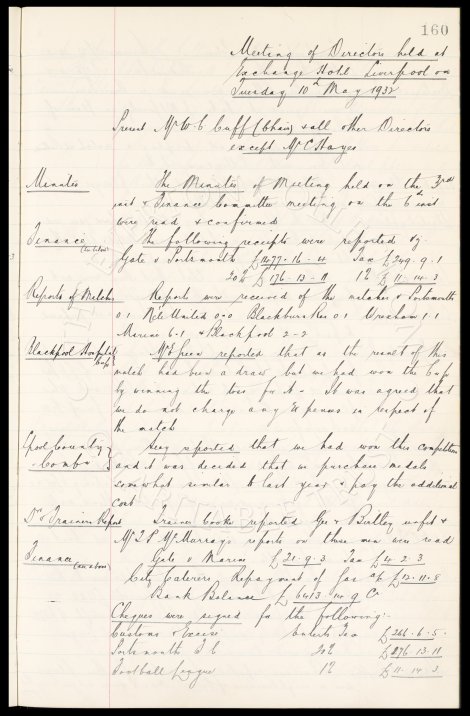 160
Meeting of Directors held at
Exchange Hotel Liverpool on
Tuesday 10th May 1932
Present Mr W C Cuff (Chair) & all other Directors
except Mr C Hayes
Minutes The Minutes of Meeting held on the 3rd
inst & Finance Committee meeting on the 6th inst
were read & confirmed
Finance (See below) The following receipts were reported
Gate v Portsmouth £1477-16-4 Tax £249-9-1
20% £176-13-11 1% £11-14-3
Reports of Matches Reports were received of the matches v Portsmouth
0 1 Newc United 0-0 Blackburn 0 1 Wrexham 1 1
Marine 6-1 & Blackpool 2-2
Blackpool Hospital Cup Mr Green reported that as the result of this
match had been a draw but we had won the Cup
by winning the toss for it - it was agreed that
we do not charge any expenses in respect of
the match
Lpool County Comb Secy reported that we had won this competition
and it was decided that we purchase medals
somewhat similar to last year & pay the additional
cost
Dr & Trainers Report Trainer Cooke reported Gee & Bulley unfit &
Mr McMurray reports on these men was read
Finance (see above) Gate v Marine £21-9-3 Tax £4-2-3
City Caterers Repayment of Gas a/c £12-11-8
Bank Balance £6413-14-9 Cr
Cheques were signed for the following:-
Customs & Excise Enterts Tax £266-6-5
Portsmouth F C 20% £176-13-11
Football League 1% £11-14-3